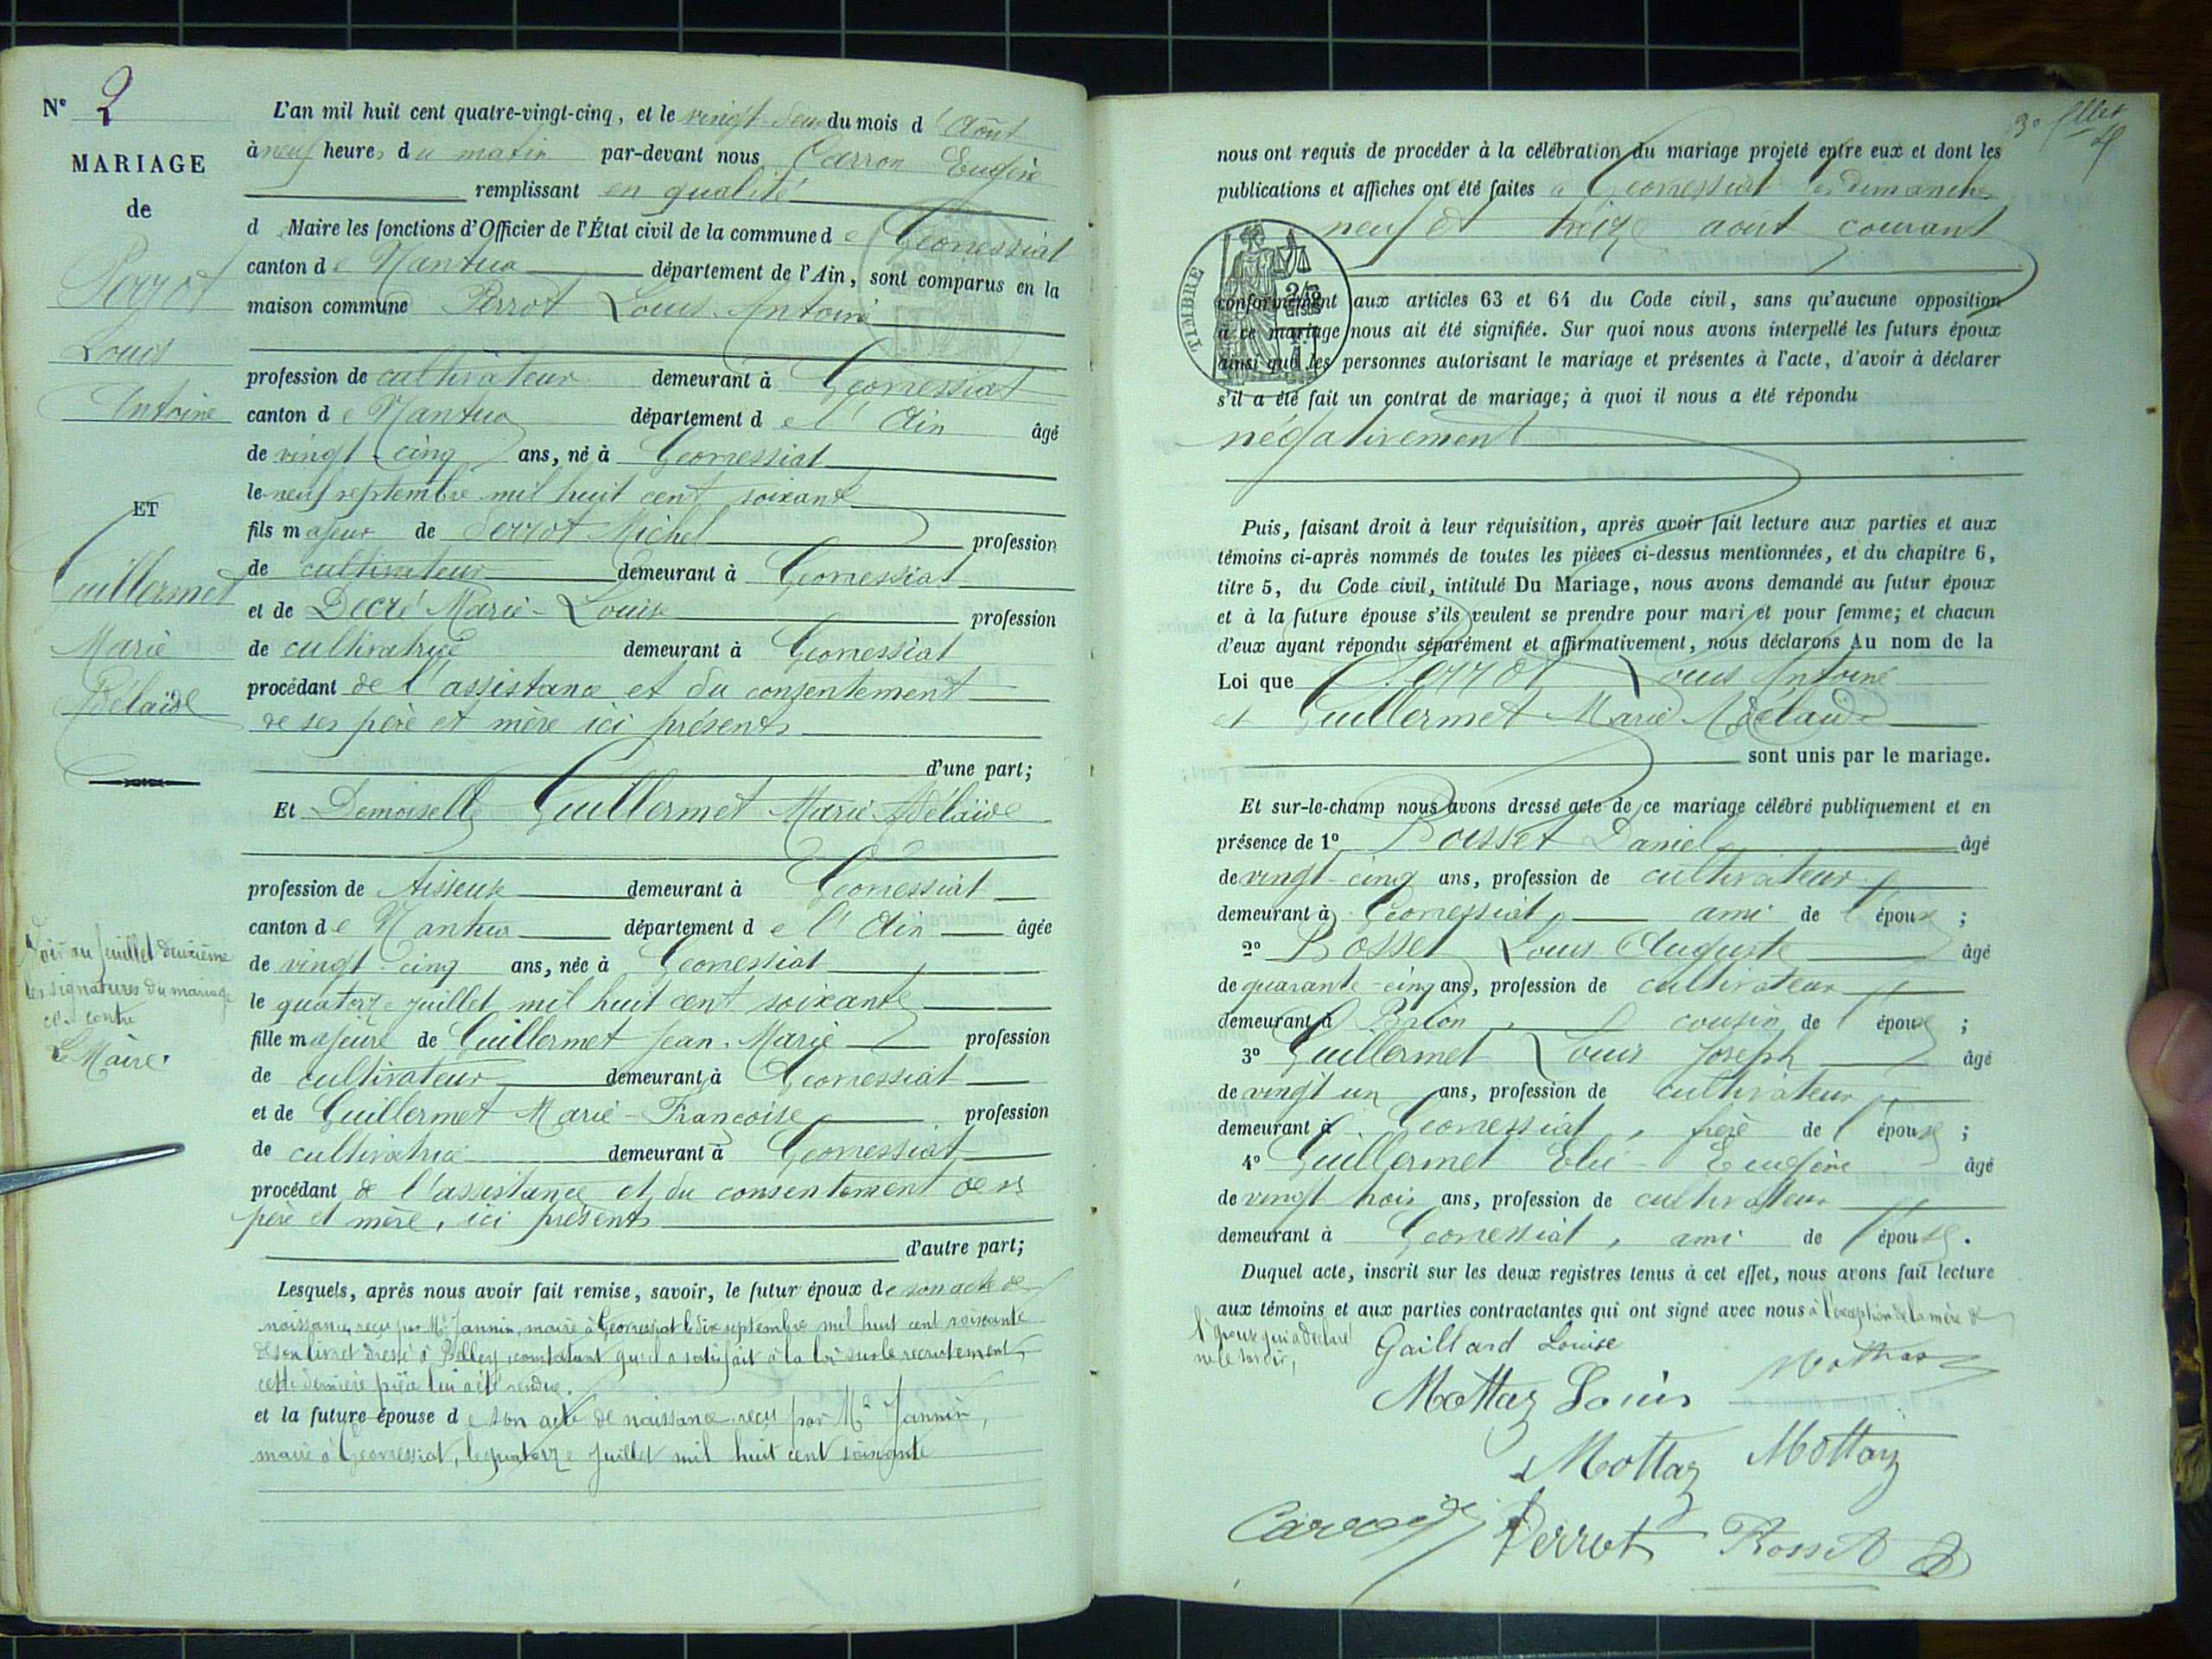 N° 2
MARIAGE
de
Perrot
Louis
Antoine
ET
Guillermet
Marie
Adélaïde
Voir au feuillet deuxième
les signatures du mariage
ci-contre
Le Maire.
L'an mil huit cent quatre-vingt-cinq, et le vingt-deux du mois d'Août
à neuf heures du matin par-devant nous Carron Eugène
remplissant en qualité
d Maire les fonctions d'Officier de l'État civil de la commune de Géovressiat
canton de Nantua département de l'Ain, sont comparus en la
maison commune Perrot Louis-Antoine
profession de cultivateur demeurant à Géovressiat
canton de Nantua département de l'Ain âgé
de vingt-cinq ans, né à Géovressiat
le neuf septembre mil huit cent soixante
fils majeur de Perrot Michel profession
de cultivateur demeurant à Géovressiat
et de Decré Marie-Louise profession
de cultivatrice demeurant à Géovressiat
procédant de l'assistance et du consentement
de ses père et mère ici présents
d'une part;
Et Demoiselle Guillermet Marie Adélaïde
profession de tisseuse demeurant à Géovressiat
canton de Nantua département de l'Ain âgée
de vingt-cinq ans, née à Géovressiat
le quatorze juillet mil huit cent soixante
fille majeure de Guillermet Jean-Marie profession
de cultivateur demeurant à Géovressiat
et de Guillermet Marie-Françoise profession
de cultivatrice demeurant à Géovressiat
procédant de l'assistance et du consentement de ses
père et mère, ici présents
d'autre part;
Lesquels, après nous avoir fait remise, savoir, le futur époux de son acte de
naissance, reçu par Mr Jannin, maire à Géovressiat le dix septembre mil huit cent soixante
de son livret dressé à Belley, constatant qu'il a satisfait à la loi sur le recrutement,
cette dernière pièce lui a été rendue.
et la future épouse de son acte de naissance reçu par Mr Jannin,
maire à Géovressiat, le quatorze juillet mil huit cent soixante
3e fllet
nous ont requis de procéder à la célébration du mariage projeté entre eux et dont les
publications et affiches ont été faites à Géovressiat les dimanches
neuf et treize août courant
TIMBRE
conformément aux articles 63 et 64 du Code civil, sans qu'aucune opposition
à ce mariage nous ait été signifiée. Sur quoi nous avons interpellé les futurs époux
ainsi que les personnes autorisant le mariage et présentes à l'acte, d'avoir à déclarer
s'il a été fait un contrat de mariage; à quoi il nous a été répondu
négativement
Puis, faisant droit à leur réquisition, après avoir fait lecture aux parties et aux
témoins ci-après nommés de toutes les pièces ci-dessus mentionnées, et du chapitre 6,
titre 5, du Code civil, intitulé Du Mariage, nous avons demandé au futur époux
et à la future épouse s'ils veulent se prendre pour mari et pour femme; et chacun
d'eux ayant répondu séparément et affirmativement, nous déclarons Au nom de la
Loi que Perrot Louis Antoine
et Guillermet Marie Adélaïde
sont unis par le mariage.
Et sur-le-champ nous avons dressé acte de ce mariage célébré publiquement et en
présence de 1° Rosset Daniel âgé
de vingt-cinq ans, profession de cultivateur
demeurant à Géovressiat, ami de l'épouse ;
2° Rosset Louis Auguste âgé
de quarante-cinq ans, profession de cultivateur
demeurant à Brion, cousin de l'épouse ;
3° Guillermet Louis Joseph âgé
de vingt un ans, profession de cultivateur
demeurant à Géovressiat, frère de l'épouse ;
4° Guillermet Elie-Eugène âgé
de vingt trois ans, profession de cultivateur
demeurant à Géovressiat, ami de l'épouse.
Duquel acte, inscrit sur les deux registres tenus à cet effet, nous avons fait lecture
aux témoins et aux parties contractantes qui ont signé avec nous à l'exception de la mère de
l'époux qui a déclaré
ne le savoir,
Gaillard Louise
Mottaz
Mottaz Louis
Mottaz Mottaz
Carron Perrot Rosset D